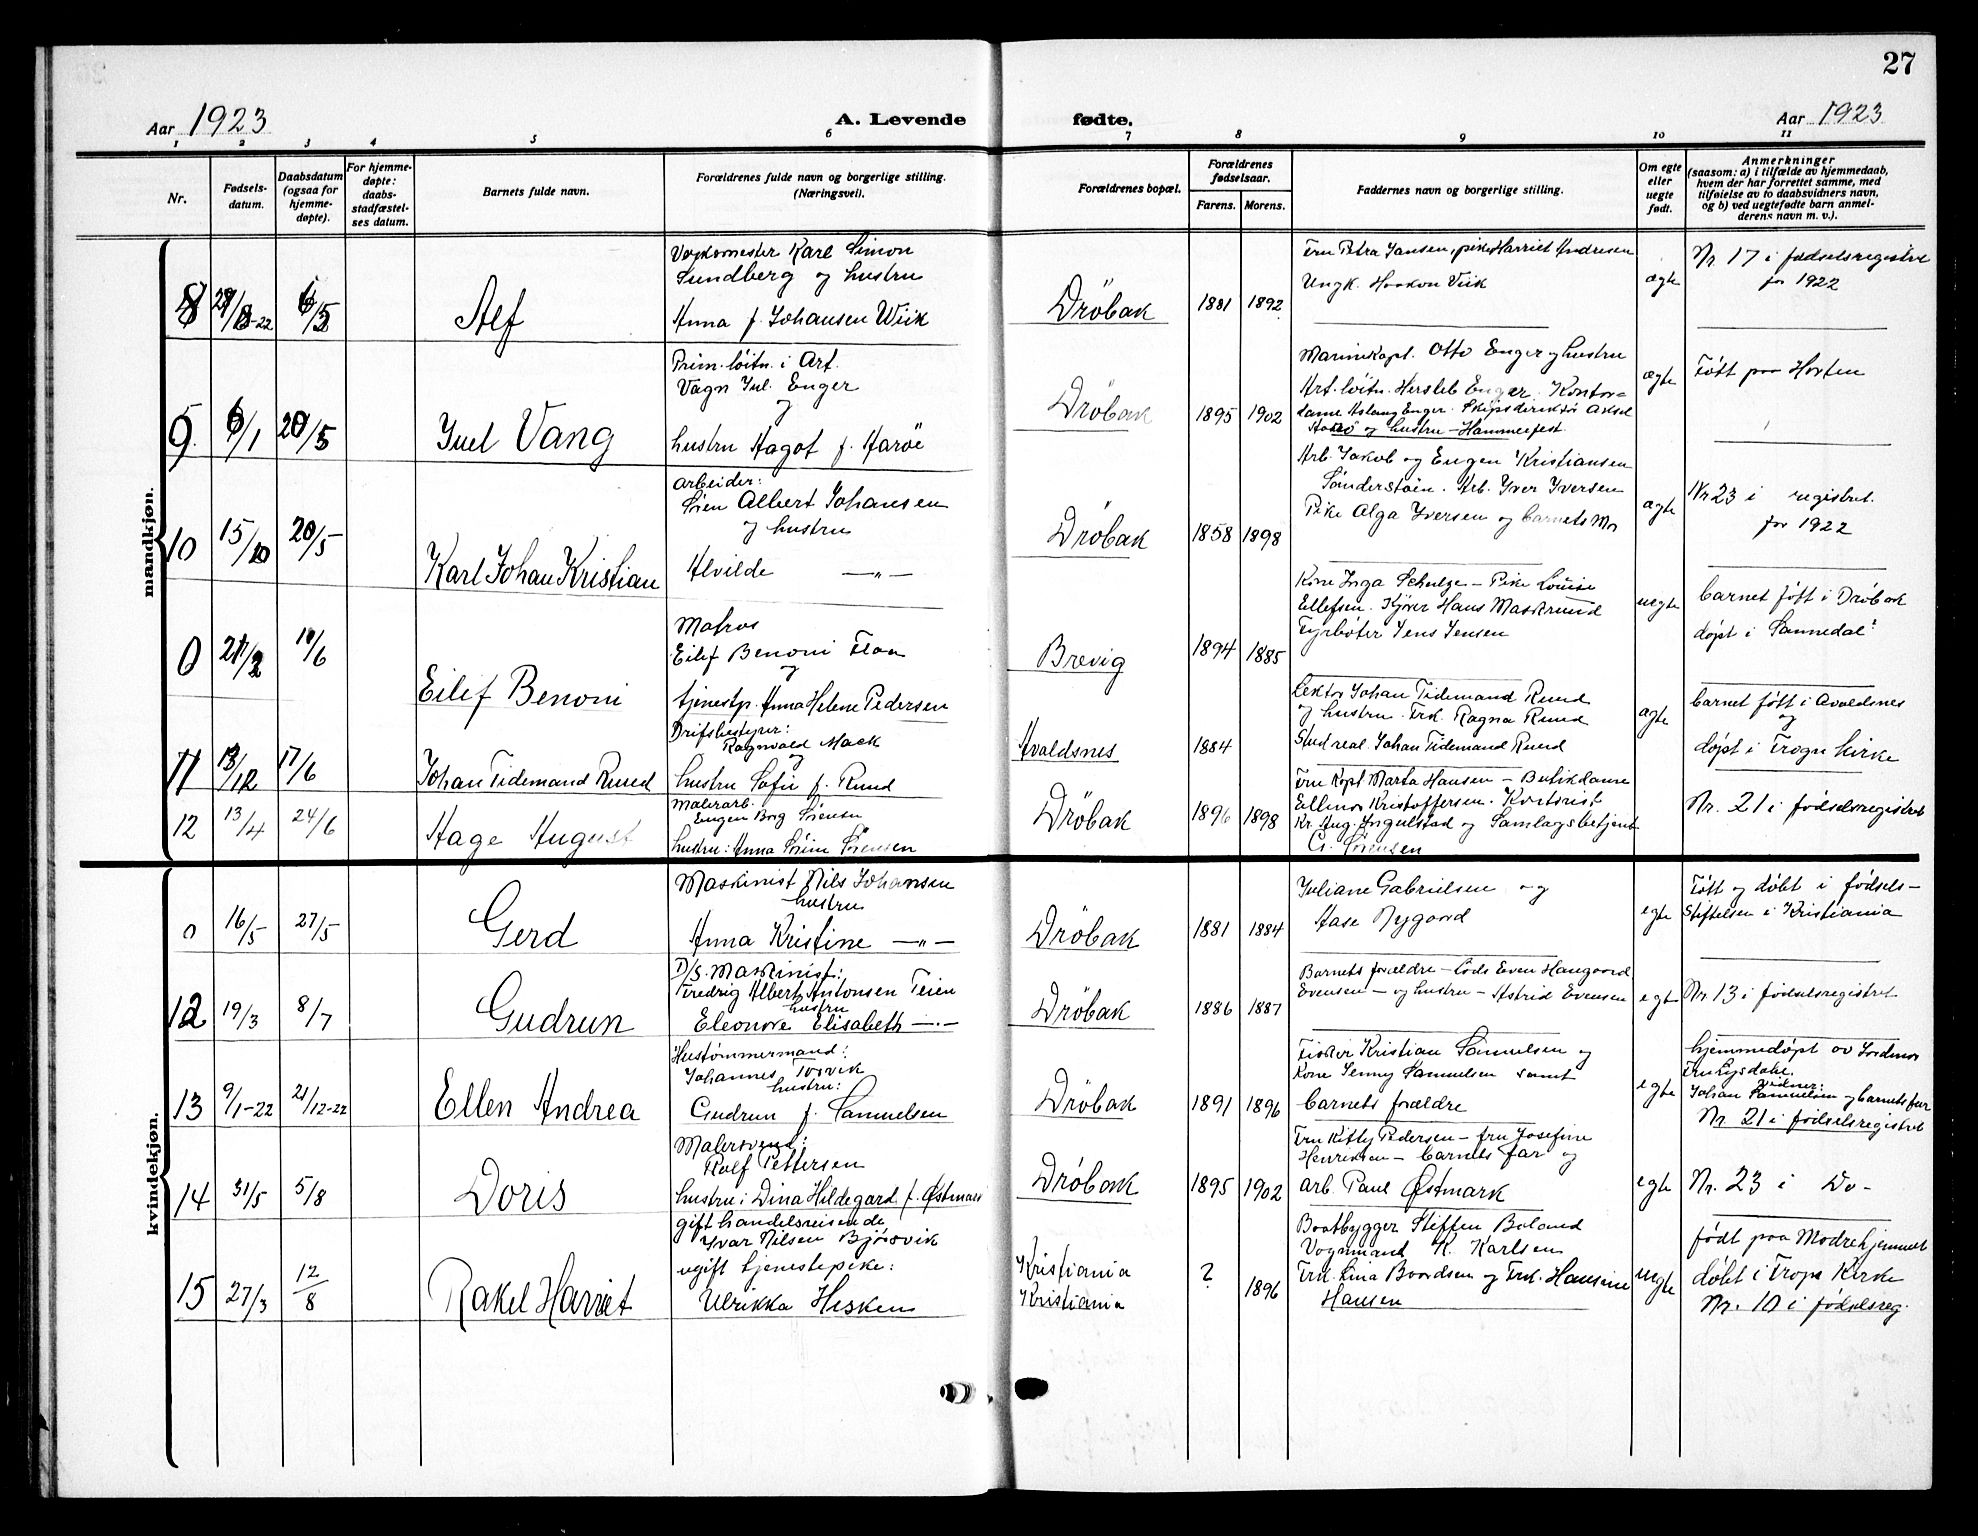 27
Aar 1923
A. Levende fødte.
Aar 1923
1 2 3 4 5 6 7 8 9 10 11
Nr.
Fødsels-
datum.
Daabsdatum
(ogsaa for
hjemme-
døpte).
For hjemme-
døpte:
daabs-
stadfæstel-
ses datum.
Barnets fulde navn.
Forældrenes fulde navn og borgerlige stilling.
(Næringsvei).
Forældrenes bopæl.
Forældrenes
fødselsaar.
Farens. Morens.
Faddernes navn og borgerlige stilling.
Om egte
eller
uegte
født.
Anmerkninger
(saasom: a) i tilfælde av hjemmedaab,
hvem der har forrettet samme, med
tilføielse av to daabsvidners navn,
og b) ved uegtefødte barn anmel-
derens navn m. v.).
mandkjøn.
8
6/5
Alf
Karl Simon
Sundberg og hustru
Anna f. Johansen Wiik
Drøbak
1881 1892
Fru Petra Jansen, pike Harriet Andresen
Ungk. Haakon Viik
ægte
Nr. 17 i fødselsregistret
for 1922
9.
6/1
20/5
Juel Vang
Prim. løitn. i Art.
Vagn Jul. Enger
og
hustru Aagot f. Aarøe
Drøbak
1895 1902
Marinekapt. Otto Enger og hustru
Art. løitn. Hersleb Enger. Kontor=
dame Aslaug Enger. Skipsdirektør Aksel
og hustru - Hammerfest.
ægte
Født paa Horten
10
15/10
20/5
Karl Johan Kristian
Arbeider:
Søren Albert Johansen
og hustru
Alvilde —„—
Drøbak
1858 1898
Arb. Jakob og Eugen Kristiansen
Sønderstøen. Arb. Yver Yversen
Pike Alga Yversen og barnets Mor
ægte
Nr 23 i registret.
for 1922
0
21/2
10/6
Eilif Benoni
Matros
Eilif Benoni Flaa
og
tjenestp. Anna Helene Pedersen
Brevig
1894 1885
Kone Inga Schulze - Pike Louise
Ellefsen. Kjører Hans Mastrund
Fyrbøter Jens Jensen
uegte
barnet født i Drøbak
døpt i Sannedal:
11
13/12
17/6
Johan Tidemand Ruud
Drifsbestyrer:
Ragnvald Mack
og
hustru Sofie f. Ruud
Avaldsnes
1884
Lektor Johan Tidemand Ruud
og hustru. Frk. Ragna Ruud
Stud real. Johan Tidemand Ruud
ægte
barnet født i Avaldsnes
og
døpt i Frogn kirke
12
13/4
24/6
Aage August
Malerarb.
Eugen Borg Sørensen
hustru: Anna Sørine Sørensen
Drøbak
1896 1898
Fru Kapt Marta Hansen - Butikdame
Ellinor Kristoffersen. Kontorist
Kr. Aug. Ingulstad og Samlagsbetjent
G. Sørensen
Nr. 21 i fødselsregistret
kvindekjøn.
0
16/5
27/5
Gerd
Maskinist Nils Johansen
hustru
Anna Kristine —„—
Drøbak
1881 1884
Juliane Gabrielsen og
Aase Nygaard
egte
Født og døbt i fødsels-
Stiftelsen i Kristiania
12
19/3
8/7
Gudrun
D/S. Maskinist:
Fredrig Albert Antonsen Teien
hustru
Eleonore Elisabeth —„—
Drøbak
1886 1887
Barnets forældre - Lods Even Haugaard
Evensen - og hustru - Astrid Evensen
egte
Nr. 13 i fødselsregistret
13
9/1-22
21/12-22
Ellen Andrea
Hustømmermand:
Johannes Torvik
hustru:
Gudrun f. Samuelsen
Drøbak
1891 1896
Fisker Kristian Samuelsen og
Kone Jenny Samuelsen samt
barnets forældre
egte
hjemmedøpt av Jordmor
vidner:
Johan Samuelsen og barnets far
Nr. 21 i fødselsregistret
14
31/5
5/8
Doris
Malersvend:
Rolf Pettersen
hustru: Dina Hildegard f. Østmark
Drøbak
1895 1902
Fru Kitty Pedersen - fru Josefine
Henriksen - barnets far og
arb. Paul Østmark
egte
Nr. 23 i Do-
15
27/3
12/8
Rakel Harriet
gift handelsreisende
Yvar Nilsen Bjørsvik
ugift tjenestepike:
Ulrikka Hesken
Kristiania
Kristiania
? 1896
Baatbygger Steffen Boland
Vognmand K. Karlsen
Frk. Lina Baardsen og Frk. Hansine
Hansen
uegte
født paa Mødrehjemmet
døbt i Frogn Kirke
Nr. 10 i fødselsreg.